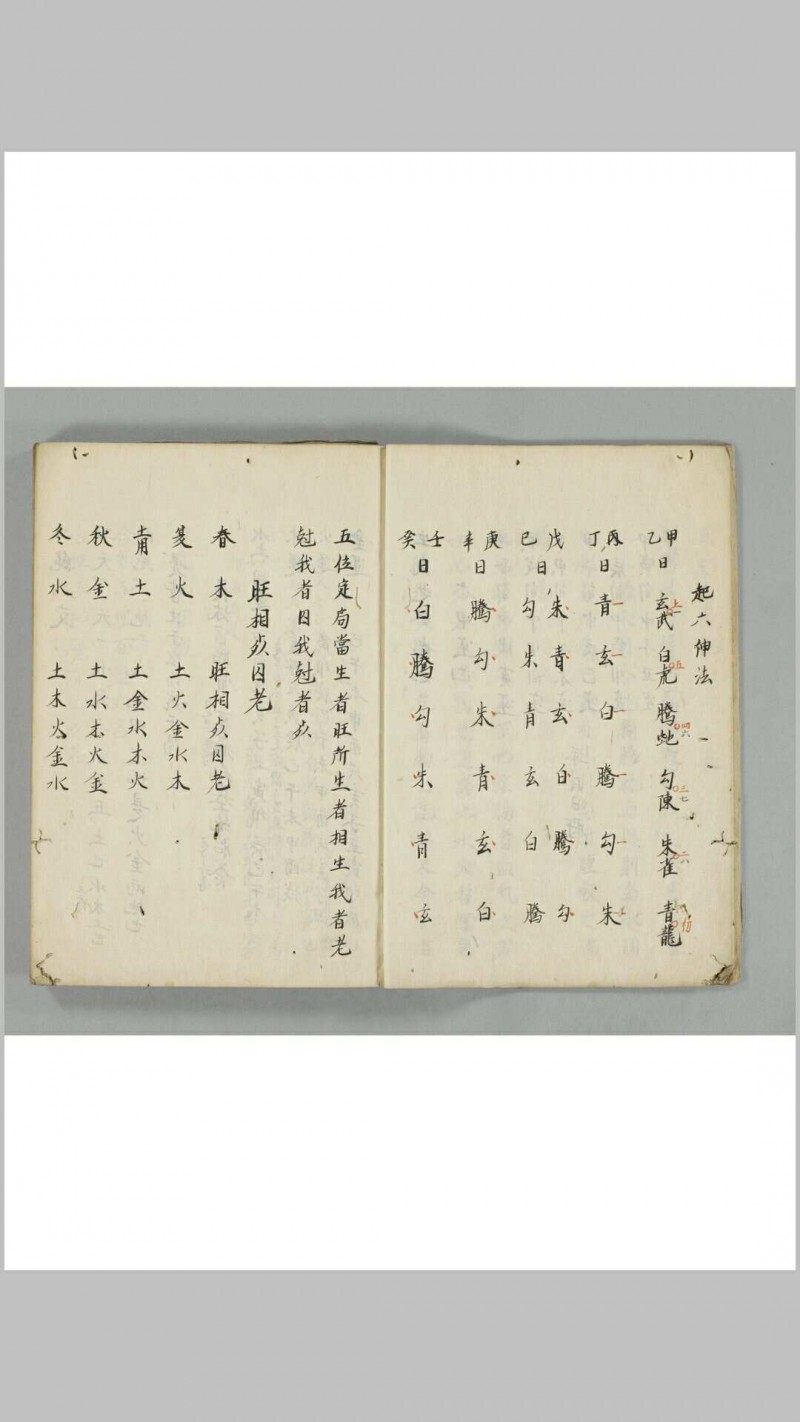 起六伸法
甲乙日 玄武 白虎 騰虵 勾陳 朱雀 青龍
丙丁日 青 玄 白 騰 勾 朱
戊 朱 青 玄 白 騰 勾
己日 勾 朱 青 玄 白 騰
庚辛日 騰 勾 朱 青 玄 白
壬癸日 白 騰 勾 朱 青 玄
五位定局當生者旺所生者相生我者老
尅我者囚我尅者死
旺相死囚老
春 木 旺相死囚老
火 土火金水木
土 土金水木火
秋 金 土水木火金
冬 水 土木火金水